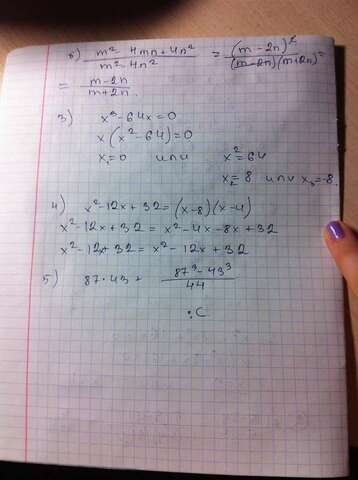 б) m² 4mn+4n² / m²-4n² = (m-2n)² / (m-2n)(m+2n) =
= m-2n / m+2n.
3) x³-64x=0
x(x²-64)=0
x₁=0 или x²=64
x₂=8 или x₃=-8.
4) x²-12x+32=(x-8)(x-4)
x²-12x+32=x²-4x-8x+32
x²-12x+32=x²-12x+32
5) 87·43+ 87³-43³ / 44
:C